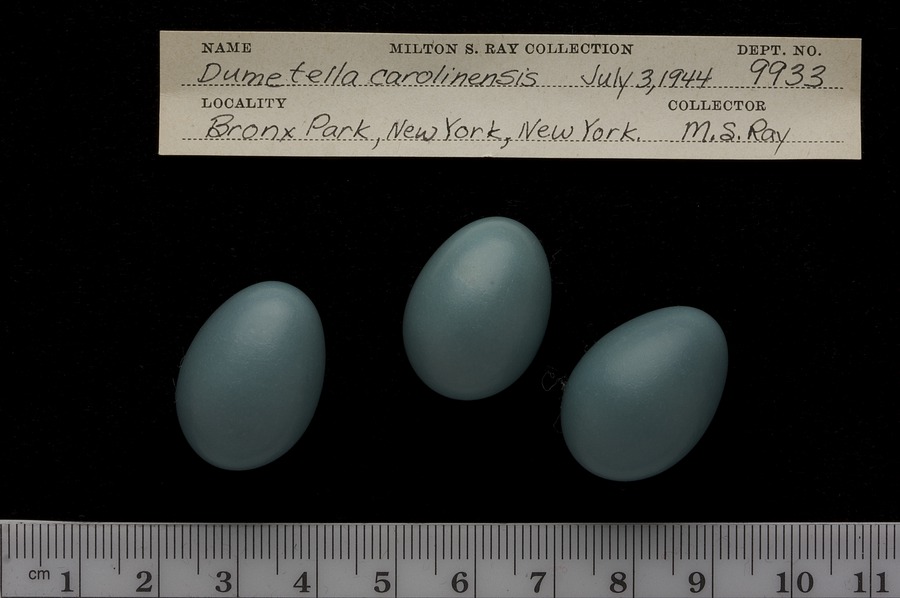 NAME MILTON S. RAY COLLECTION DEPT. NO.
Dumetella carolinensis July 3, 1944 9933
LOCALITY COLLECTOR
Bronx Park, New York, New York. M.S. Ray
cm 1 2 3 4 5 6 7 8 9 10 11